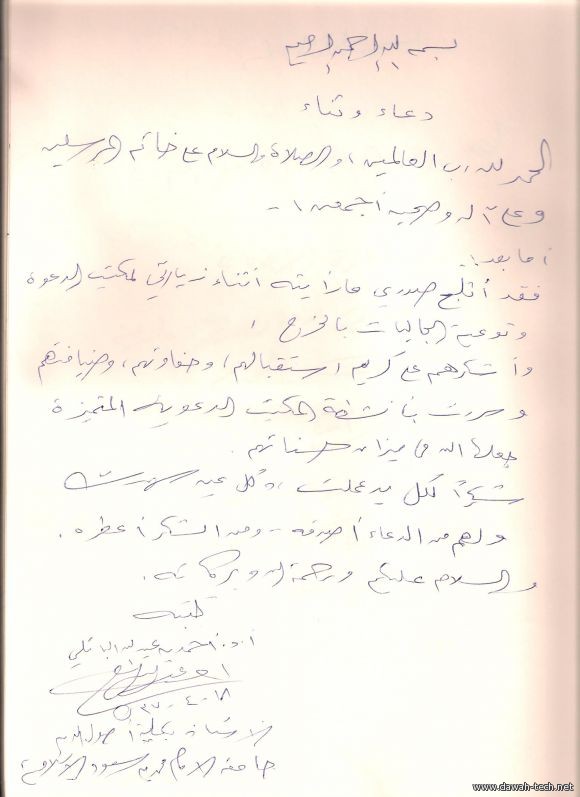 بسم الله الرحمن الرحيم
دعاء وثناء
الحمد لله رب العالمين، والصلاة والسلام على خاتم المرسلين
وعلى آله وصحبه أجمعين ..
أما بعد:
فقد أثلج صدري ما رأيته أثناء زيارتي لمكتب الدعوة
وتوعية الجاليات بالخرج،
وأشكرهم على كريم استقبالهم، وحفاوتهم، وضيافتهم
وسررت بأنشطة المكتب الدعوية المتميزة
جعلها الله في ميزان حسناتهم.
شكراً لكل يد عملت، ولكل عين سهرت
ولهم من الدعاء أصدقه - ومن الشكر أعطره.
والسلام عليكم ورحمة الله وبركاته.
كتبه
أ.د. أحمد بن عبدالله الباتلي
الأستاذ بكلية أصول الدين
جامعة الإمام محمد بن سعود الإسلامية
www.dawah-tech.net